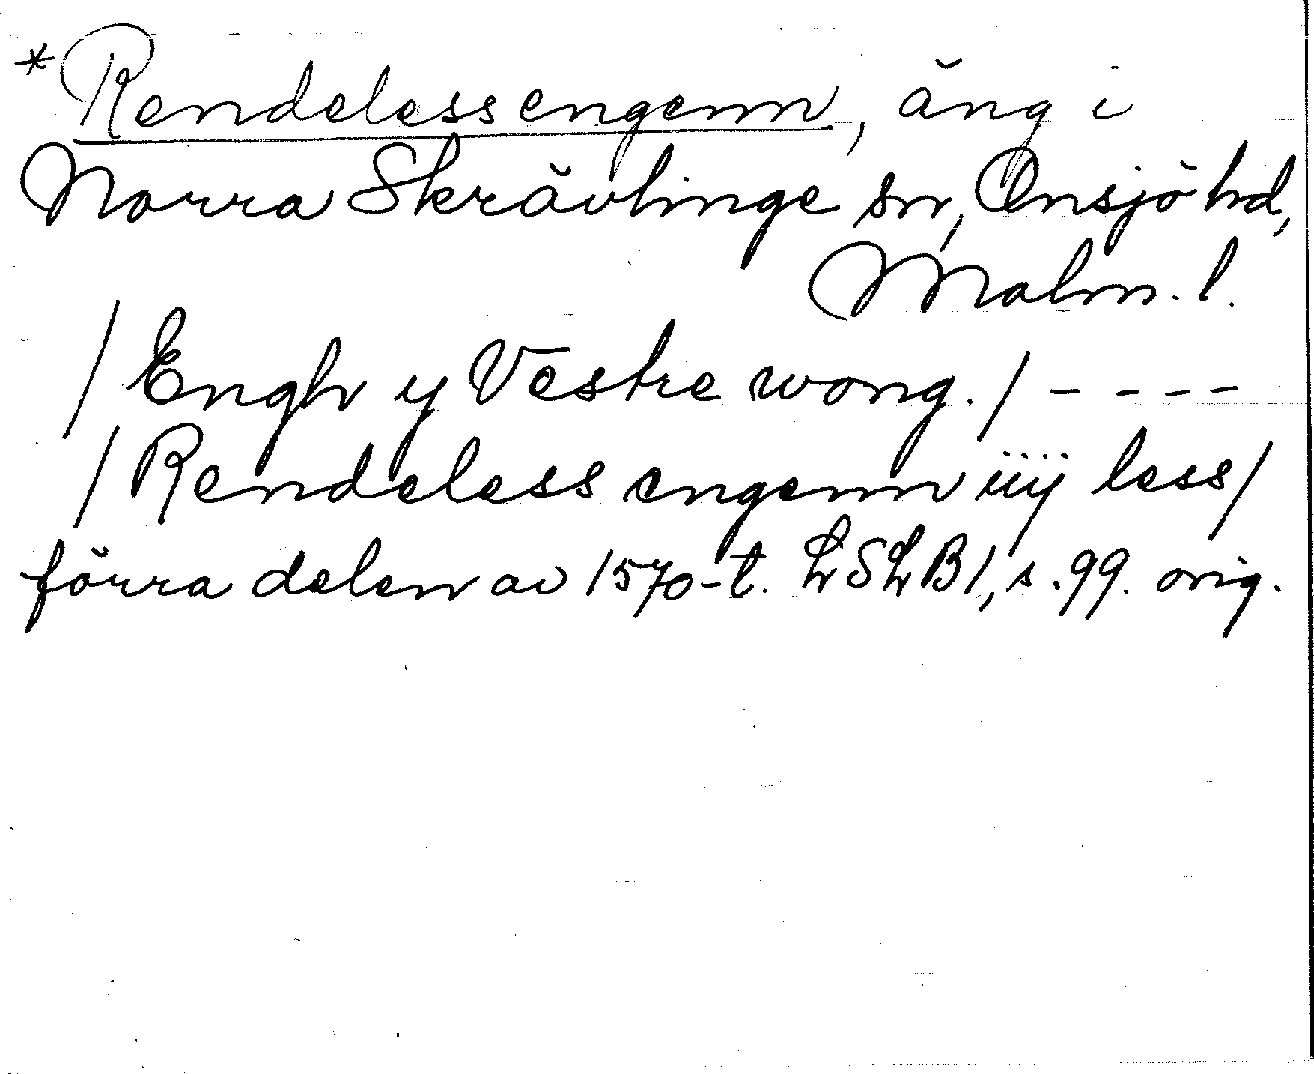 *Rendelessengenn, äng i
Norra Skrävlinge sn, Onsjö hd,
Malm. l.
/Engh y Vestre wong./ - - - -
/Rendeless engenn iiij less/
förra delen av 1570-t. LSLB1, s. 99. orig.